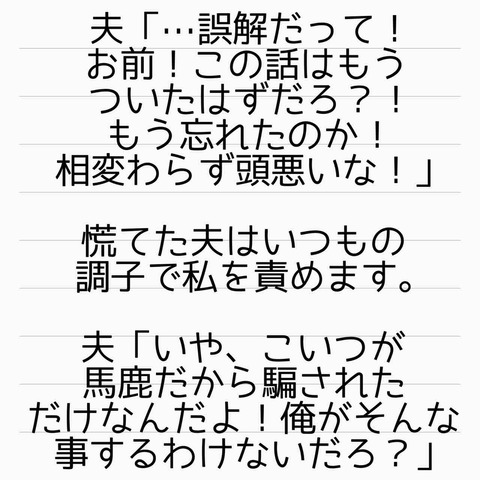 夫「…誤解だって！
お前！この話はもう
ついたはずだろ？！
もう忘れたのか！
相変わらず頭悪いな！」
慌てた夫はいつもの
調子で私を責めます。
夫「いや、こいつが
馬鹿だから騙された
だけなんだよ！俺がそんな
事するわけないだろ？」